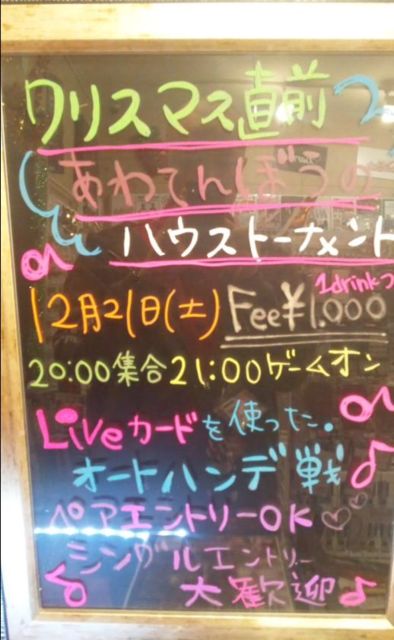 クリスマス直前
あわてんぼうの
ハウストーナメント
1drinkつ
12月21日(土) Fee¥1.000
20:00集合 21:00ゲームオン
Liveカードを使った。
オートハンデ戦
ペアエントリーOK♡♡
シングルエントリー
大歓迎♪